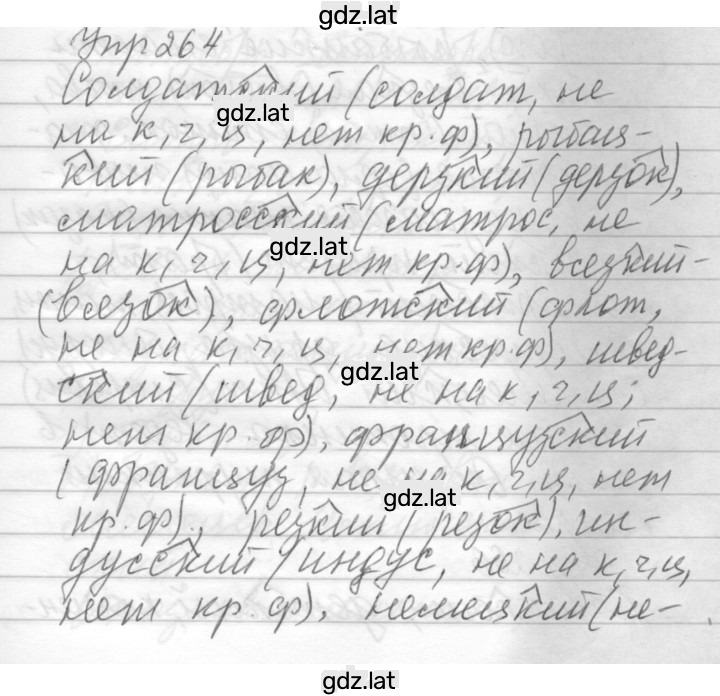 gdz.lat
Упр 264
Солдатский (солдат, не
gdz.lat
на к, ч, ц, нет кр.ф), рыбац-
кий (рыбак), дерзкий (дерзок),
матросский (матрос, не
gdz.lat
на к, ч, ц, нет кр.ф), вязкий-
(вязок), флотский (флот,
не на к, ч, ц, нет кр.ф), швед-
gdz.lat
ский (швед, не на к, ч, ц;
нет кр.ф), французский
(француз, не на к, ч, ц, нет
gdz.lat
кр.ф)., резкий (резок), ин-
дусский (индус, не на к, ч, ц,
нет кр.ф), немецкий (не-
gdz.lat